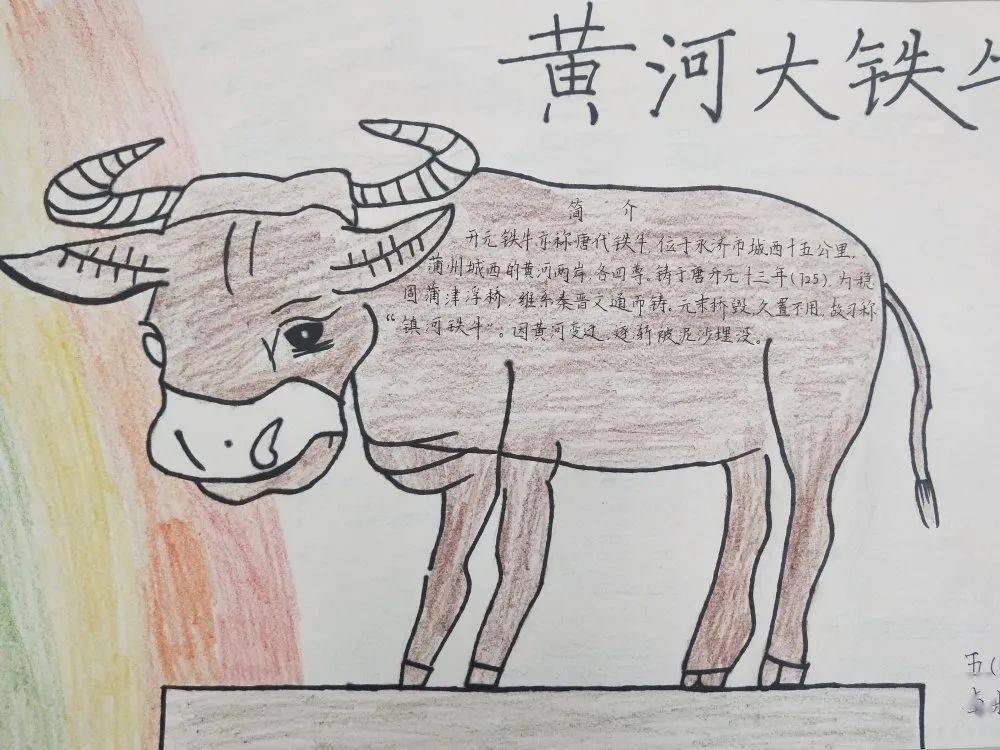 黄河大铁牛
简 介
开元铁牛亦称唐代铁牛,位于永济市城西十五公里,
蒲州城西的黄河两岸,各四尊。铸于唐开元十三年(725)为稳
固蒲津浮桥,维系秦晋交通而铸。元末桥毁,久置不用,故习称
“镇河铁牛”。因黄河变迁,逐渐被泥沙埋没。
五(